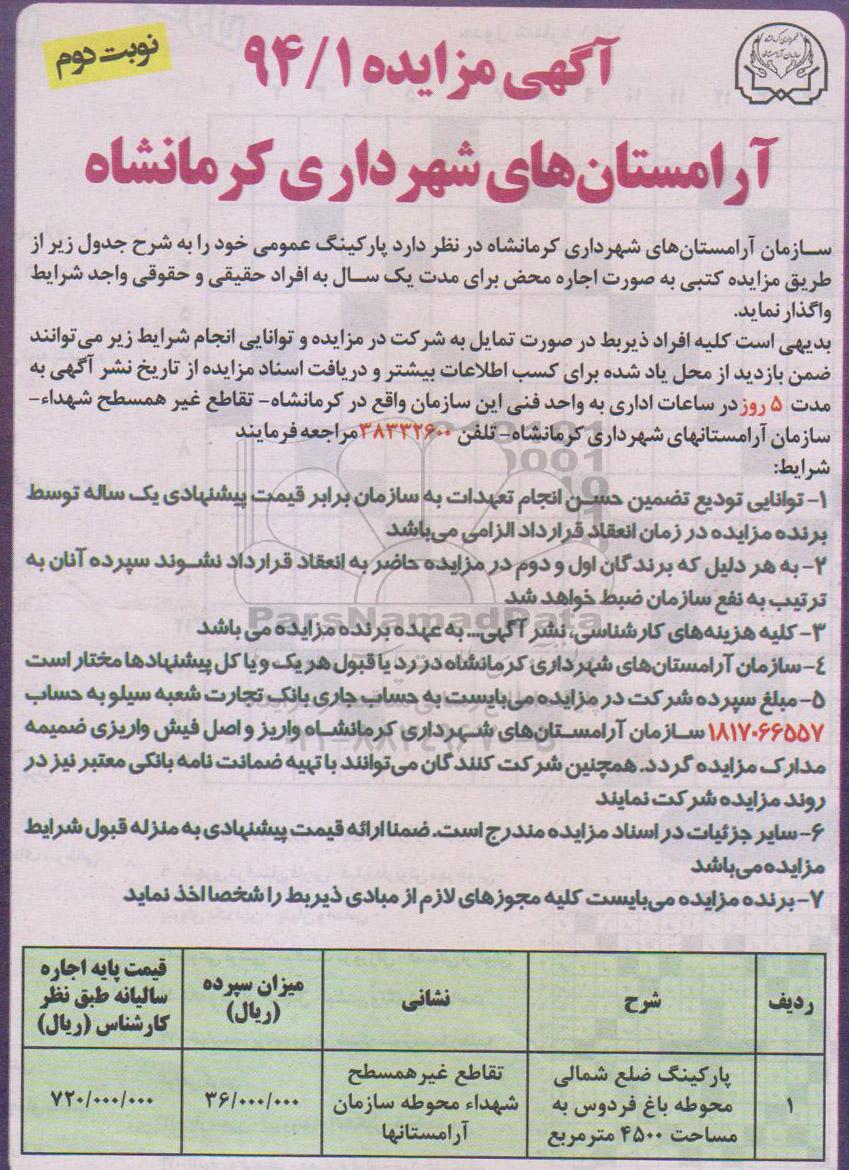 نوبت دوم
آگهی مزایده ۹۴/۱
آرامستان‌های شهرداری کرمانشاه
ســازمان آرامستان‌های شهرداری کرمانشاه در نظر دارد پارکینگ عمومی خود را به شرح جدول زیر از
طریق مزایده کتبی به صورت اجاره محض برای مدت یک ســال به افراد حقیقی و حقوقی واجد شرایط
واگذار نماید.
بدیهی است کلیه افراد ذیربط در صورت تمایل به شرکت در مزایده و توانایی انجام شرایط زیر می‌توانند
ضمن بازدید از محل یاد شده برای کسب اطلاعات بیشتر و دریافت اسناد مزایده از تاریخ نشر آگهی به
مدت ۵ روز در ساعات اداری به واحد فنی این سازمان واقع در کرمانشاه- تقاطع غیر همسطح شهداء-
سازمان آرامستانهای شهرداری کرمانشاه- تلفن ۳۸۳۳۲۶۰۰ مراجعه فرمایند
شرایط:
۱- توانایی تودیع تضمین حسـن انجام تعهدات به سازمان برابر قیمت پیشنهادی یک ساله توسط
برنده مزایده در زمان انعقاد قرارداد الزامی می‌باشد
۲- به هر دلیل که برندگان اول و دوم در مزایده حاضر به انعقاد قرارداد نشــوند سپرده آنان به
ترتیب به نفع سازمان ضبط خواهد شد
ParsNamadData
۳- کلیه هزینه‌های کارشناسی، نشر آگهی... به عهده برنده مزایده می باشد
۴- سازمان آرامستان‌های شهرداری کرمانشاه در رد یا قبول هر یک و یا کل پیشنهادها مختار است
۵- مبلغ سپرده شرکت در مزایده می‌بایست به حساب جاری بانک تجارت شعبه سیلو به حساب
۱۸۱۷۰۶۶۵۵۷ ســازمان آرامســتان‌های شــهرداری کرمانشــاه واریز و اصل فیش واریزی ضمیمه
مدارک مزایده گردد. همچنین شرکت کنندگان می‌توانند با تهیه ضمانت نامه بانکی معتبر نیز در
روند مزایده شرکت نمایند
۶- سایر جزئیات در اسناد مزایده مندرج است. ضمنا ارائه قیمت پیشنهادی به منزله قبول شرایط
مزایده می‌باشد
۷- برنده مزایده می‌بایست کلیه مجوزهای لازم از مبادی ذیربط را شخصا اخذ نماید
ردیف
شرح
نشانی
میزان سپرده
(ریال)
قیمت پایه اجاره
سالیانه طبق نظر
کارشناس (ریال)
۱
پارکینگ ضلع شمالی
محوطه باغ فردوس به
مساحت ۴۵۰۰ مترمربع
تقاطع غیرهمسطح
شهداء محوطه سازمان
آرامستانها
۳۶/۰۰۰/۰۰۰
۷۲۰/۰۰۰/۰۰۰